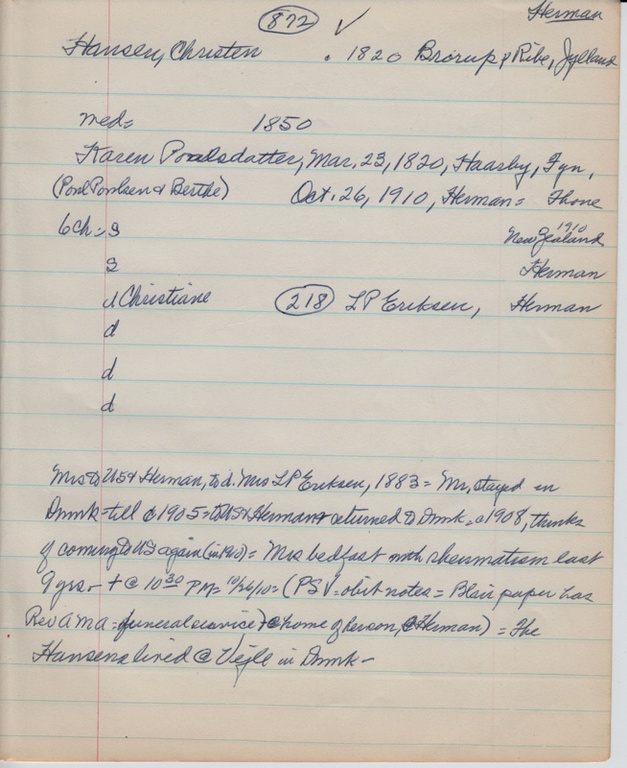 872 ✓ Herman
Hansen, Christen . 1820 Brorup & Ribe, Jylland
med = 1850
Karen Poulsdatter, Mar. 23, 1820, Haarby, Fyn,
(Poul Poulsen & Berthe) Oct. 26, 1910, Herman = Thone
6 ch: s 1910 New Zealand
s Herman
d Christiane 218 L P Eriksen, Herman
d
d
d
Mrs to US & Herman, to d. Mrs L P Eriksen, 1883 = Mr, stayed in
Dnmk till c 1905 = to US & Herman returned to Dnmk c 1908, thinks
of coming to US again (in 1910) = Mrs bedfast with rheumatism last
9 yrs - + @ 10 30 PM = 10/26/10 = (PS V = obit notes = Blair paper has
Rev A M A = funeral service) @ home of gerson, @ Herman) = The
Hansens lived @ Vejle in Dnmk -